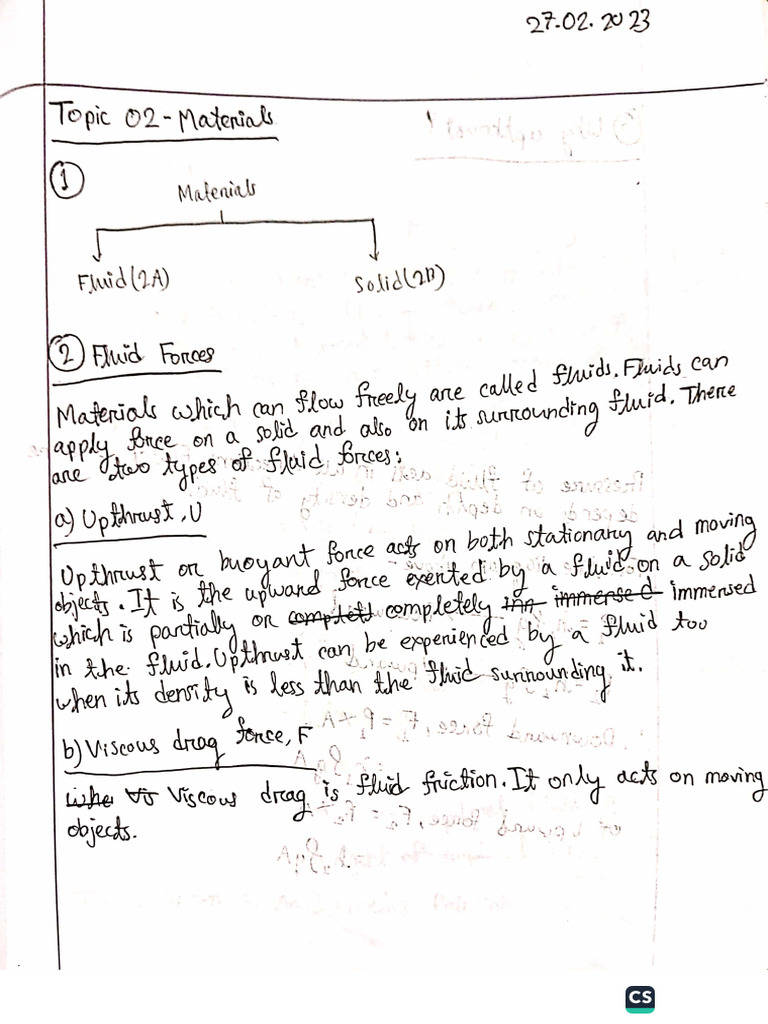 27.02.2023
Topic 02-Materials
1
Materials
Fluid(2A) Solid(2B)
2 Fluid Forces
Materials which can flow freely are called fluids. Fluids can
apply force on a solid and also on its surrounding fluid. There
are two types of fluid forces:
a) Upthrust, U
Upthrust or buoyant force acts on both stationary and moving
objects. It is the upward force exerted by a fluid on a solid
which is partially or complet completely inn immersed immersed
in the fluid. Upthrust can be experienced by a fluid too
when its density is less than the fluid surrounding it.
b) Viscous drag force, F
Viscous drag is fluid friction. It only acts on moving
objects.
CS